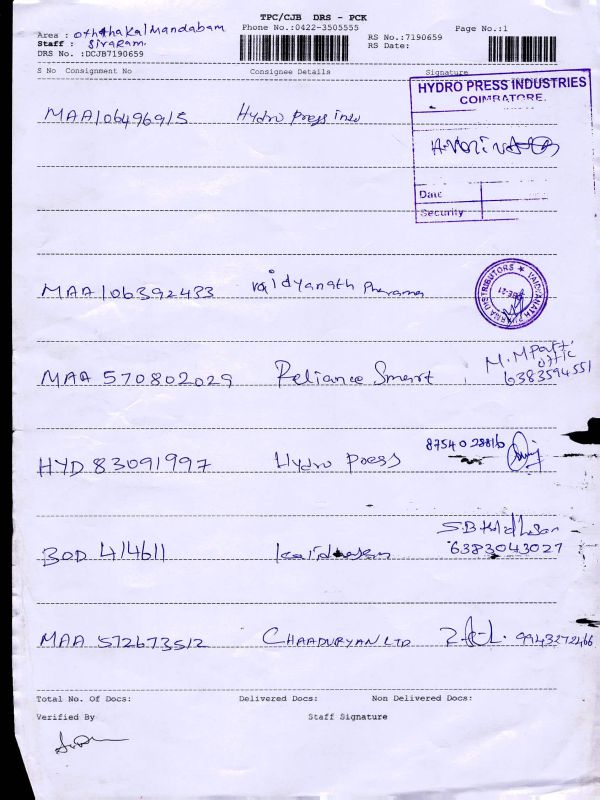 TPC/CJB DRS - PCK
Phone No.:0422-3505555 Page No.:1
Area : oththakalMandabam
Staff : Sivaram
RS No.:7190659
RS Date:
DRS No. :DCJB7190659
S No Consignment No Consignee Details Signature
HYDRO PRESS INDUSTRIES
COIMBATORE.
MAA106496915 Hydro press inds
Date
Security
MAA106392433 Vaidyanath Pharama
VAIDYANATH PHARMA DISTRIBUTORS
MAA 570802029 Reliance Smart
6383594551
HYD 83091997 Hydro press
BOD 414611
6383043027
MAA 572673512 CHAADURYAN LTD 9943272466
Total No. Of Docs: Delivered Docs: Non Delivered Docs:
Verified By Staff Signature